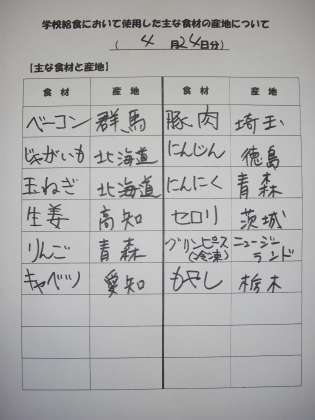 学校給食において使用した主な食材の産地について
（ 4 月24日分）
【主な食材と産地】
食 材 産 地 食 材 産 地
ベーコン 群馬 豚肉 埼玉
じゃがいも 北海道 にんじん 徳島
玉ねぎ 北海道 にんにく 青森
生姜 高知 セロリ 茨城
りんご 青森 グリンピース(冷凍) ニュージーランド
キャベツ 愛知 もやし 栃木